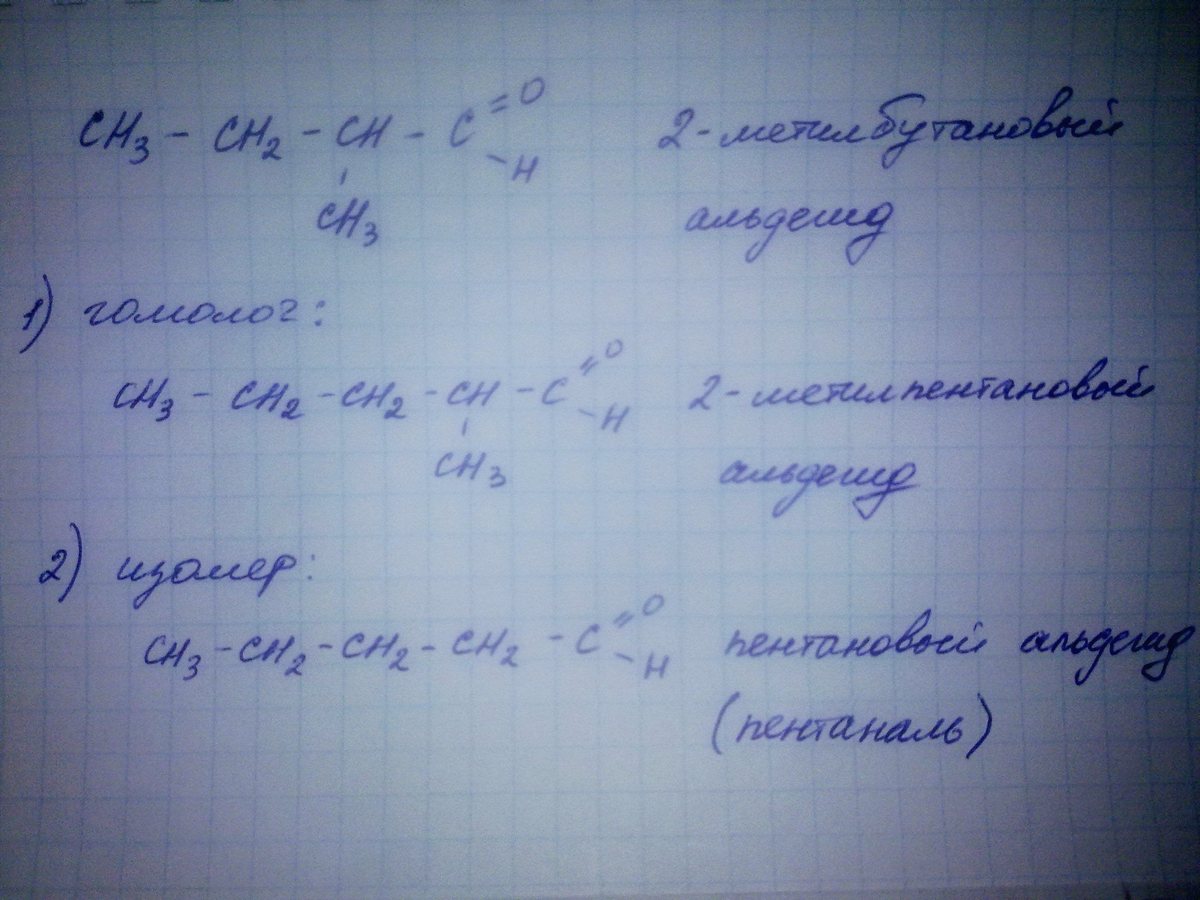 CH₃ – CH₂ – CH – C =O 2-метилбутановый
– H
CH₃ альдегид
1) гомолог:
CH₃ – CH₂ – CH₂ – CH – C =O 2-метилпентановый
– H
CH₃ альдегид
2) изомер:
CH₃ – CH₂ – CH₂ – CH₂ – C =O пентановый альдегид
– H
(пентаналь)